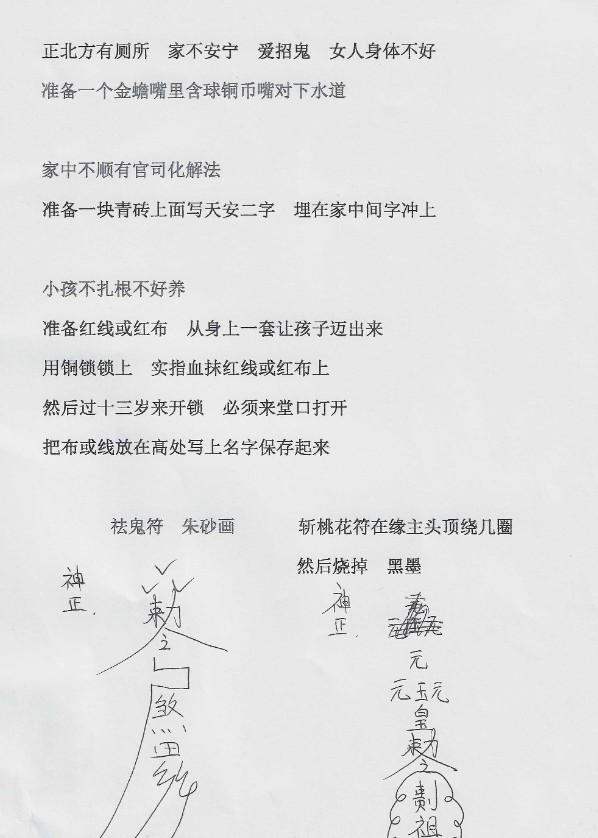 正北方有厕所　家不安宁　爱招鬼　女人身体不好
准备一个金蟾嘴里含球铜币嘴对下水道
家中不顺有官司化解法
准备一块青砖上面写天安二字　埋在家中间字冲上
小孩不扎根不好养
准备红线或红布　从身上一套让孩子迈出来
用铜锁锁上　实指血抹红线或红布上
然后过十三岁来开锁　必须来堂口打开
把布或线放在高处写上名字保存起来
祛鬼符　朱砂画
斩桃花符在缘主头顶绕几圈
然后烧掉　黑墨
神正
敕
之
煞
神正
元
元玉元
皇
敕
之
祖